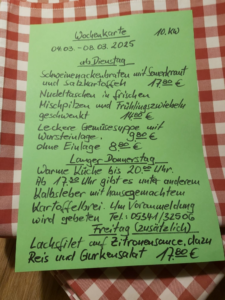 Wochenkarte
10. KW
04.03. - 08.03. 2025
ab Dienstag
Schweinenackenbraten mit Sauerkraut
und Salzkartoffeln 17.00 €
Nudeltaschen in frischen
Mischpilzen und Frühlingszwiebeln
geschwenkt 14.00 €
Leckere Gemüsesuppe mit
Wursteinlage. 9.00 €
ohne Einlage 8.00 €
Langer Donnerstag
Warme Küche bis 20.00 Uhr.
Ab 17.30 Uhr gibt es unter anderem
Kalbsleber mit hausgemachtem
Kartoffelbrei. Um Voranmeldung
wird gebeten Tel: 05341/32506
Freitag (zusätzlich)
Lachsfilet auf Zitronensauce, dazu
Reis und Gurkensalat 17.00 €